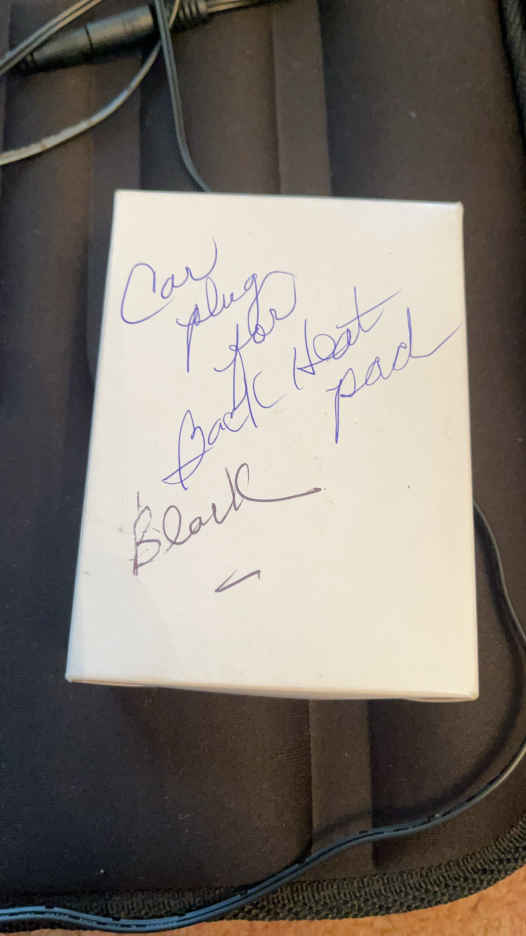 Car
plug
for
Back Heat
pad
Black